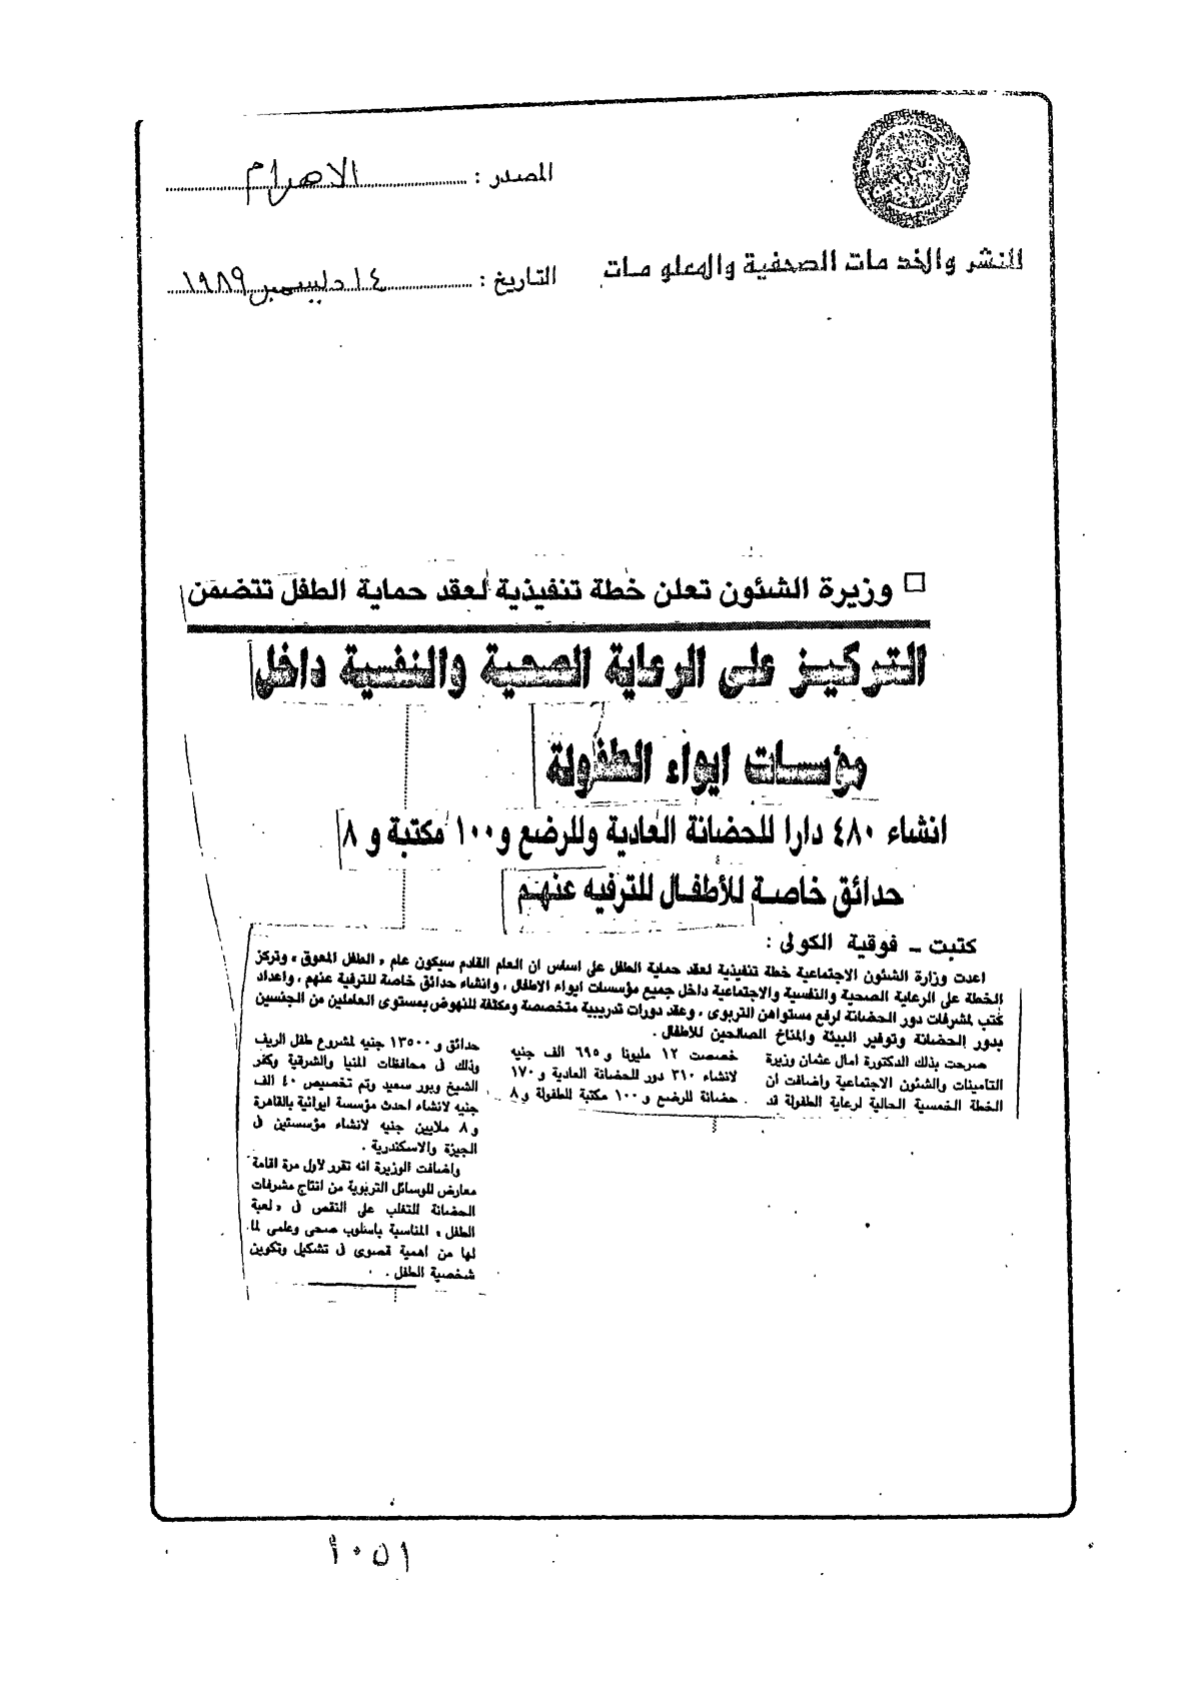 المصدر : الاهرام
للنشر والخدمات الصحفية والمعلومات
التاريخ : ١٤ ديسمبر ١٩٨٩
□ وزيرة الشئون تعلن خطة تنفيذية لعقد حماية الطفل تتضمن
التركيز على الرعاية الصحية والنفسية داخل
مؤسسات ايواء الطفولة
انشاء ٤٨٠ دارا للحضانة العادية وللرضع و١٠٠ مكتبة و ٨
حدائق خاصة للأطفال للترفيه عنهم
كتبت ـ فوقية الكولى :
اعدت وزارة الشئون الاجتماعية خطة تنفيذية لعقد حماية الطفل على اساس ان العام القادم سيكون عام « الطفل المعوق » وتركز
الخطة على الرعاية الصحية والنفسية والاجتماعية داخل جميع مؤسسات ايواء الاطفال ، وانشاء حدائق خاصة للترفية عنهم ، واعداد
كتب لمشرفات دور الحضانة لرفع مستواهن التربوى ، وعقد دورات تدريبية متخصصة ومكثفة للنهوض بمستوى العاملين من الجنسين
بدور الحضانة وتوفير البيئة والمناخ الصالحين للاطفال .
صرحت بذلك الدكتورة امال عثمان وزيرة
التامينات والشئون الاجتماعية واضافت ان
الخطة الخمسية الحالية لرعاية الطفولة قد
خصصت ١٢ مليونا و ٦٩٥ الف جنيه
لانشاء ٣١٠ دور للحضانة العادية و ١٧٠
حضانة للرضع و ١٠٠ مكتبة للطفولة و ٨
حدائق و ١٣٥٠٠ جنيه لمشروع طفل الريف
وذلك فى محافظات المنيا والشرقية وكفر
الشيخ وبور سعيد وتم تخصيص ٤٠ الف
جنيه لانشاء احدث مؤسسة ايوائية بالقاهرة
و ٨ ملايين جنيه لانشاء مؤسستين فى
الجيزة والاسكندرية .
واضافت الوزيرة انه تقرر لاول مرة اقامة
معارض للوسائل التربوية من انتاج مشرفات
الحضانة للتغلب على النقص فى « لعبة
الطفل » المناسبة باسلوب صحى وعلمى لما
لها من اهمية قصوى فى تشكيل وتكوين
شخصية الطفل .